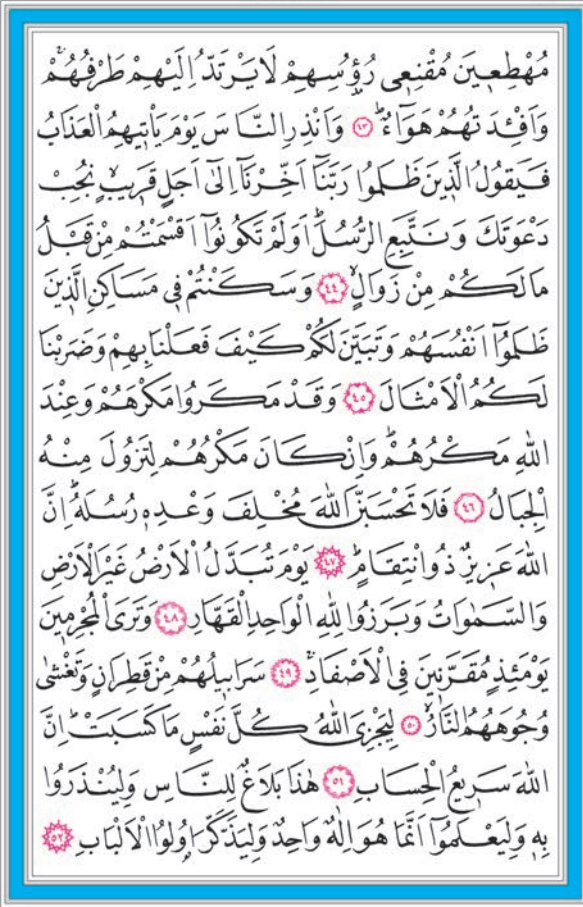 مُهْطِعِينَ مُقْنِعِى رُؤُسِهِمْ لَا يَرْتَدُّ اِلَيْهِمْ طَرْفُهُمْۚ
وَاَفْـِٔدَتُهُمْ هَوَٓاءٌۜ ﴿٤٣﴾ وَاَنْذِرِ النَّاسَ يَوْمَ يَأْت۪يهِمُ الْعَذَابُ
فَيَقُولُ الَّذ۪ينَ ظَلَمُوا رَبَّنَٓا اَخِّرْنَٓا اِلٰٓى اَجَلٍ قَر۪يبٍۙ نُجِبْ
دَعْوَتَكَ وَنَتَّبِعِ الرُّسُلَۜ اَوَلَمْ تَكُونُٓوا اَقْسَمْتُمْ مِنْ قَبْلُ
مَا لَكُمْ مِنْ زَوَالٍۙ ﴿٤٤﴾ وَسَكَنْتُمْ ف۪ي مَسَاكِنِ الَّذ۪ينَ
ظَلَمُٓوا اَنْفُسَهُمْ وَتَبَيَّنَ لَكُمْ كَيْفَ فَعَلْنَا بِهِمْ وَضَرَبْنَا
لَكُمُ الْاَمْثَالَ ﴿٤٥﴾ وَقَدْ مَكَرُوا مَكْرَهُمْ وَعِنْدَ
اللّٰهِ مَكْرُهُمْۜ وَاِنْ كَانَ مَكْرُهُمْ لِتَزُولَ مِنْهُ
الْجِبَالُ ﴿٤٦﴾ فَلَا تَحْسَبَنَّ اللّٰهَ مُخْلِفَ وَعْدِه۪ رُسُلَهُۜ اِنَّ
اللّٰهَ عَز۪يزٌ ذُو انْتِقَامٍۜ ﴿٤٧﴾ يَوْمَ تُبَدَّلُ الْاَرْضُ غَيْرَ الْاَرْضِ
وَالسَّمٰوَاتُ وَبَرَزُوا لِلّٰهِ الْوَاحِدِ الْقَهَّارِ ﴿٤٨﴾ وَتَرَى الْمُجْرِم۪ينَ
يَوْمَئِذٍ مُقَرَّن۪ينَ فِي الْاَصْفَادِۚ ﴿٤٩﴾ سَرَاب۪يلُهُمْ مِنْ قَطِرَانٍ وَتَغْشٰى
وُجُوهَهُمُ النَّارُۙ ﴿٥٠﴾ لِيَجْزِيَ اللّٰهُ كُلَّ نَفْسٍ مَا كَسَبَتْۜ اِنَّ
اللّٰهَ سَر۪يعُ الْحِسَابِ ﴿٥١﴾ هٰذَا بَلَاغٌ لِلنَّاسِ وَلِيُنْذَرُوا
بِه۪ وَلِيَعْلَمُٓوا اَنَّمَا هُوَ اِلٰهٌ وَاحِدٌ وَلِيَذَّكَّرَ اُولُوا الْاَلْبَابِ ﴿٥٢﴾